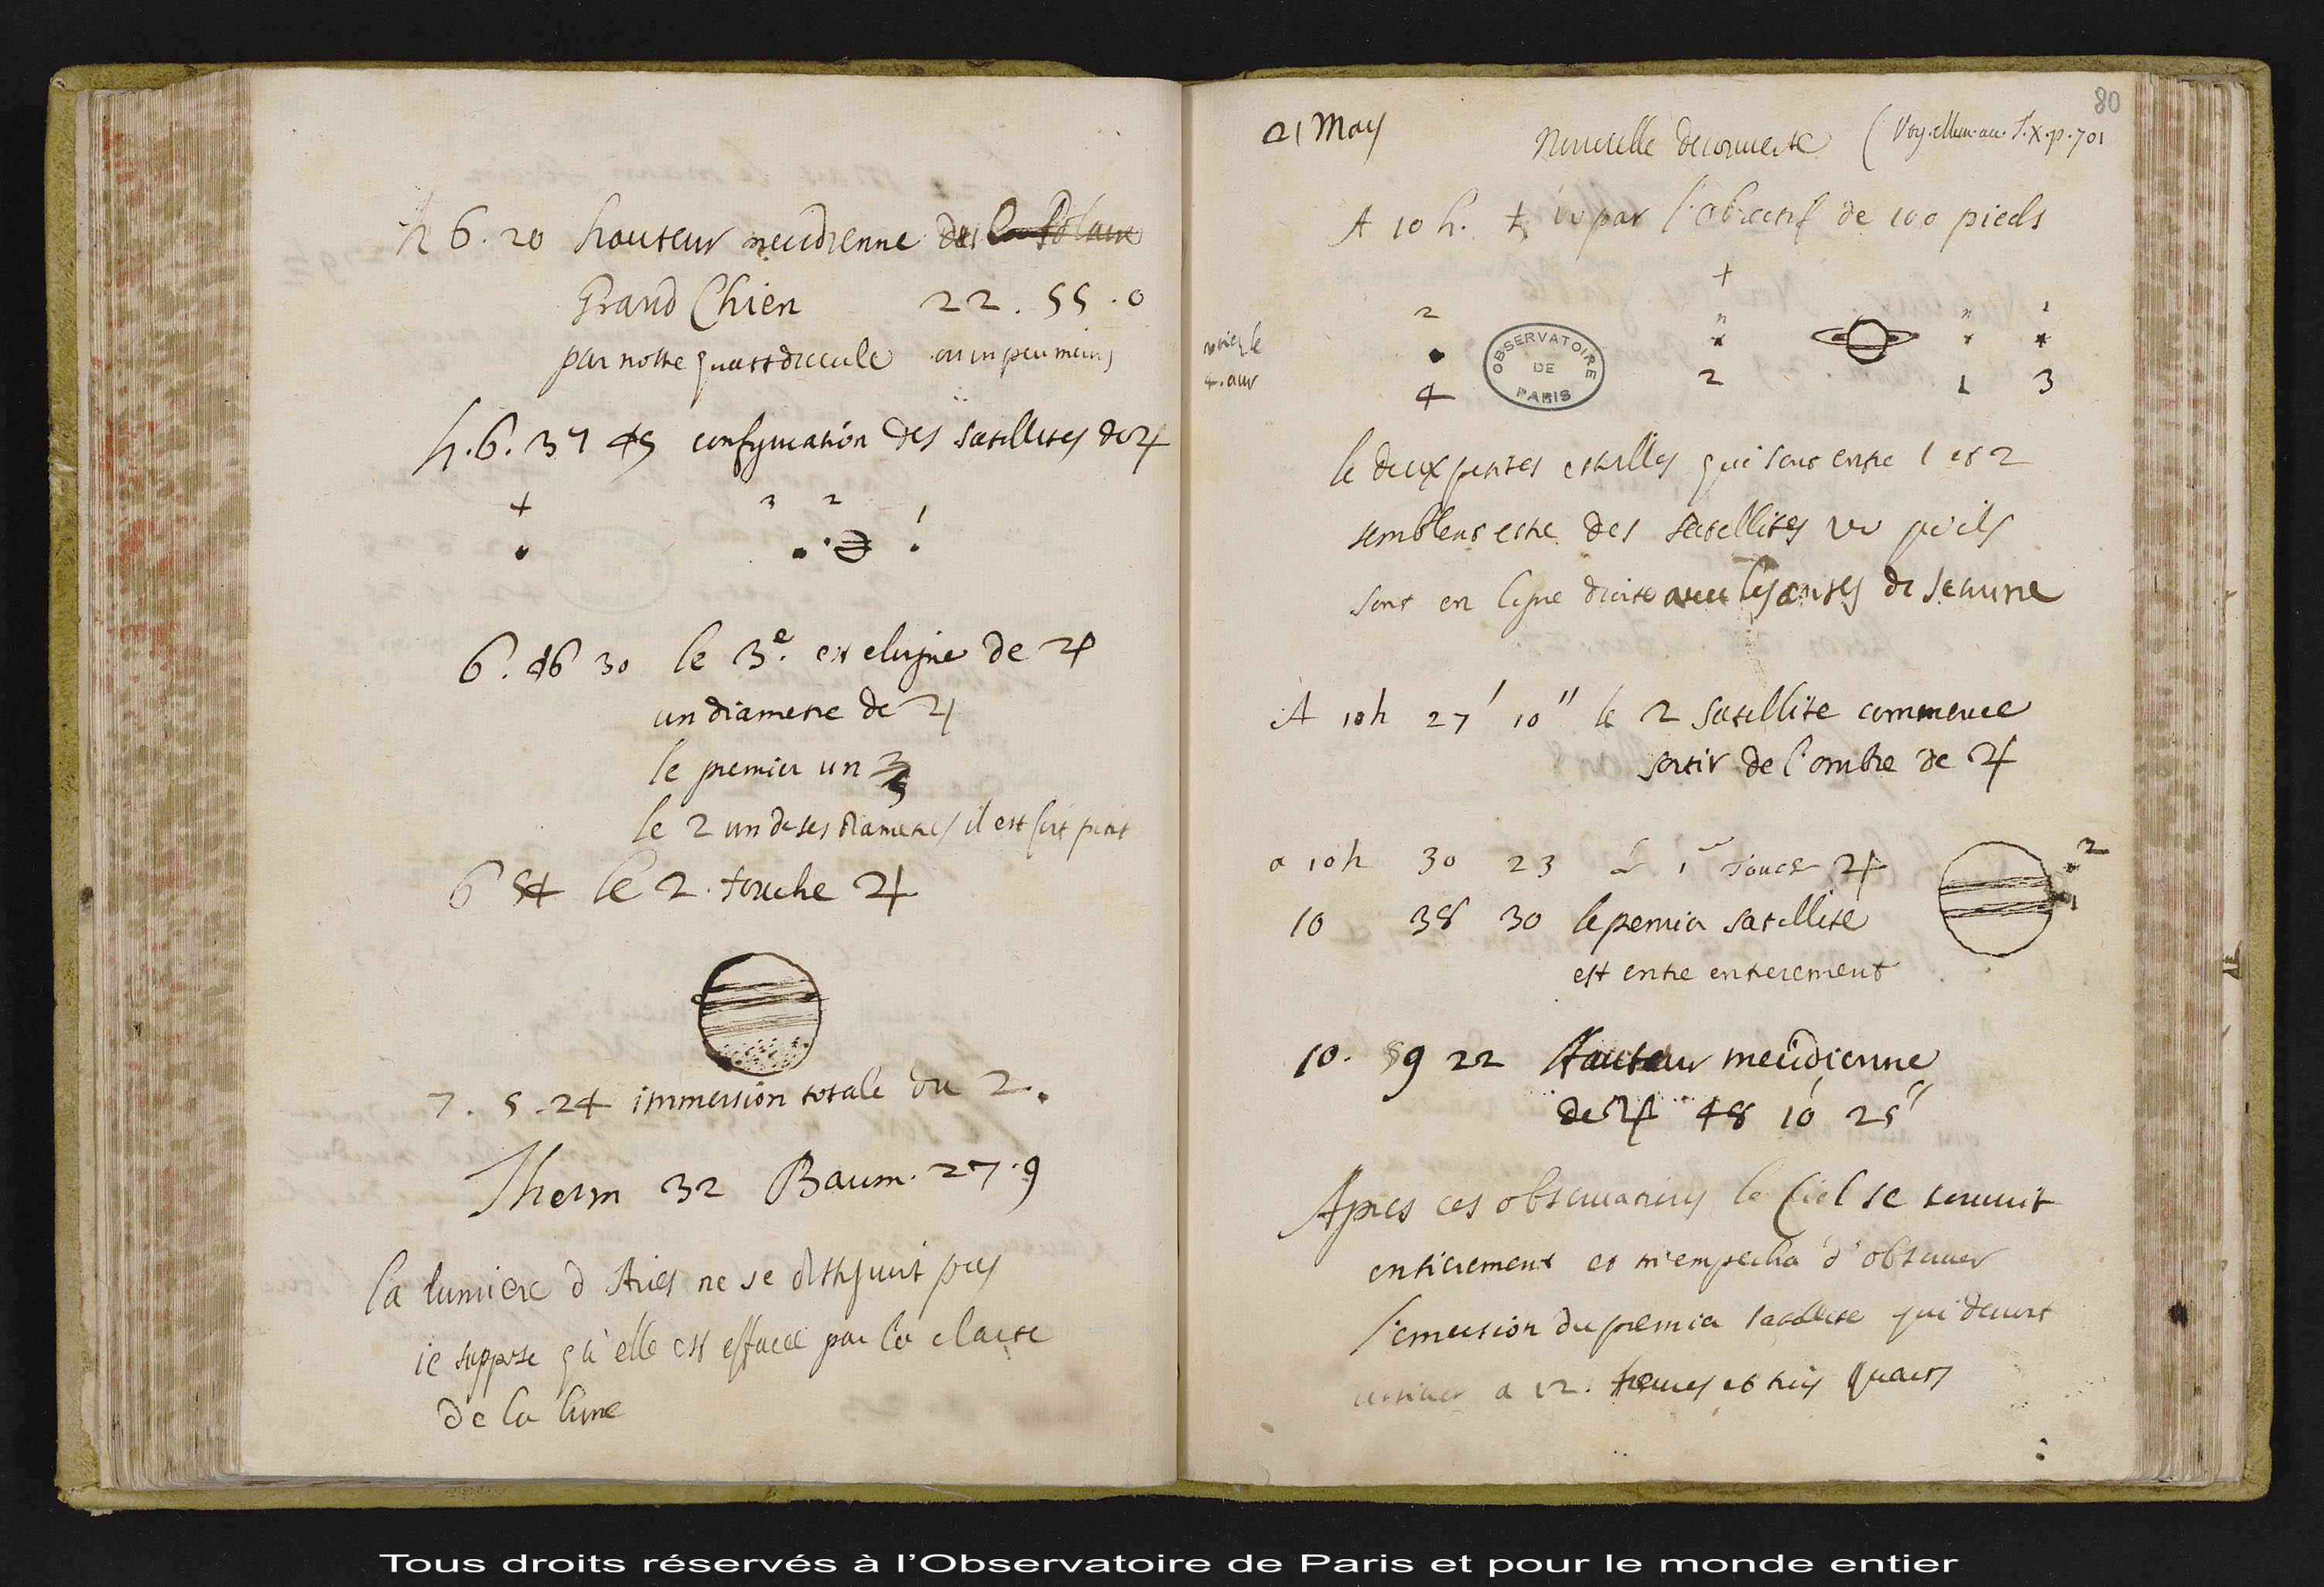 h 6. 20 hauteur meridienne des la Polaire
Grand Chien 22. 55. 0
par nostre quart de cercle ou un peu moins
h. 6. 37 45 configuration des satellites de ♃
4 3 2 1
6. 46 30 le 3e. est eloigne de ♃
un diametre de ♃
le premier un
le 2 un de ses diametres il est fort petit
6 54 le 2. touche ♃
7. 5. 24 immersion totale du 2.
Therm 32 Barom. 27. 9
la lumiere d Aries ne se distinguoit pas
ie suppose qu'elle est effacee par la clarte
de la lune
80
21 May Nouvelle decouverte (Voy. Mem. ac. T. X. p. 701
A 10 h. ♄ vu par l'obiectif de 100 pieds
+
2 n n 1
voiez le
4. aur
OBSERVATOIRE DE PARIS
4 2 1 3
le deux petites estoilles qui sont entre 1 et 2
semblent estre des satellites vu qu'ils
sont en ligne droite avec les anses de saturne
A 10h 27' 10" le 2 satellite commence
sortir de l'ombre de ♃
a 10h 30 23 Le 1r touche ♃
2
1
10 38 30 le premier satellite
est entre entierement
10. 59 22 Hauteur meridienne
de ♃ 48 10' 25"
Apres ces observations le Ciel se couvrit
entierement et m'empecha d'observer
l'emersion du premier satellite qui devoit
arriver a 12. heures et trois quarts
Tous droits réservés à l'Observatoire de Paris et pour le monde entier